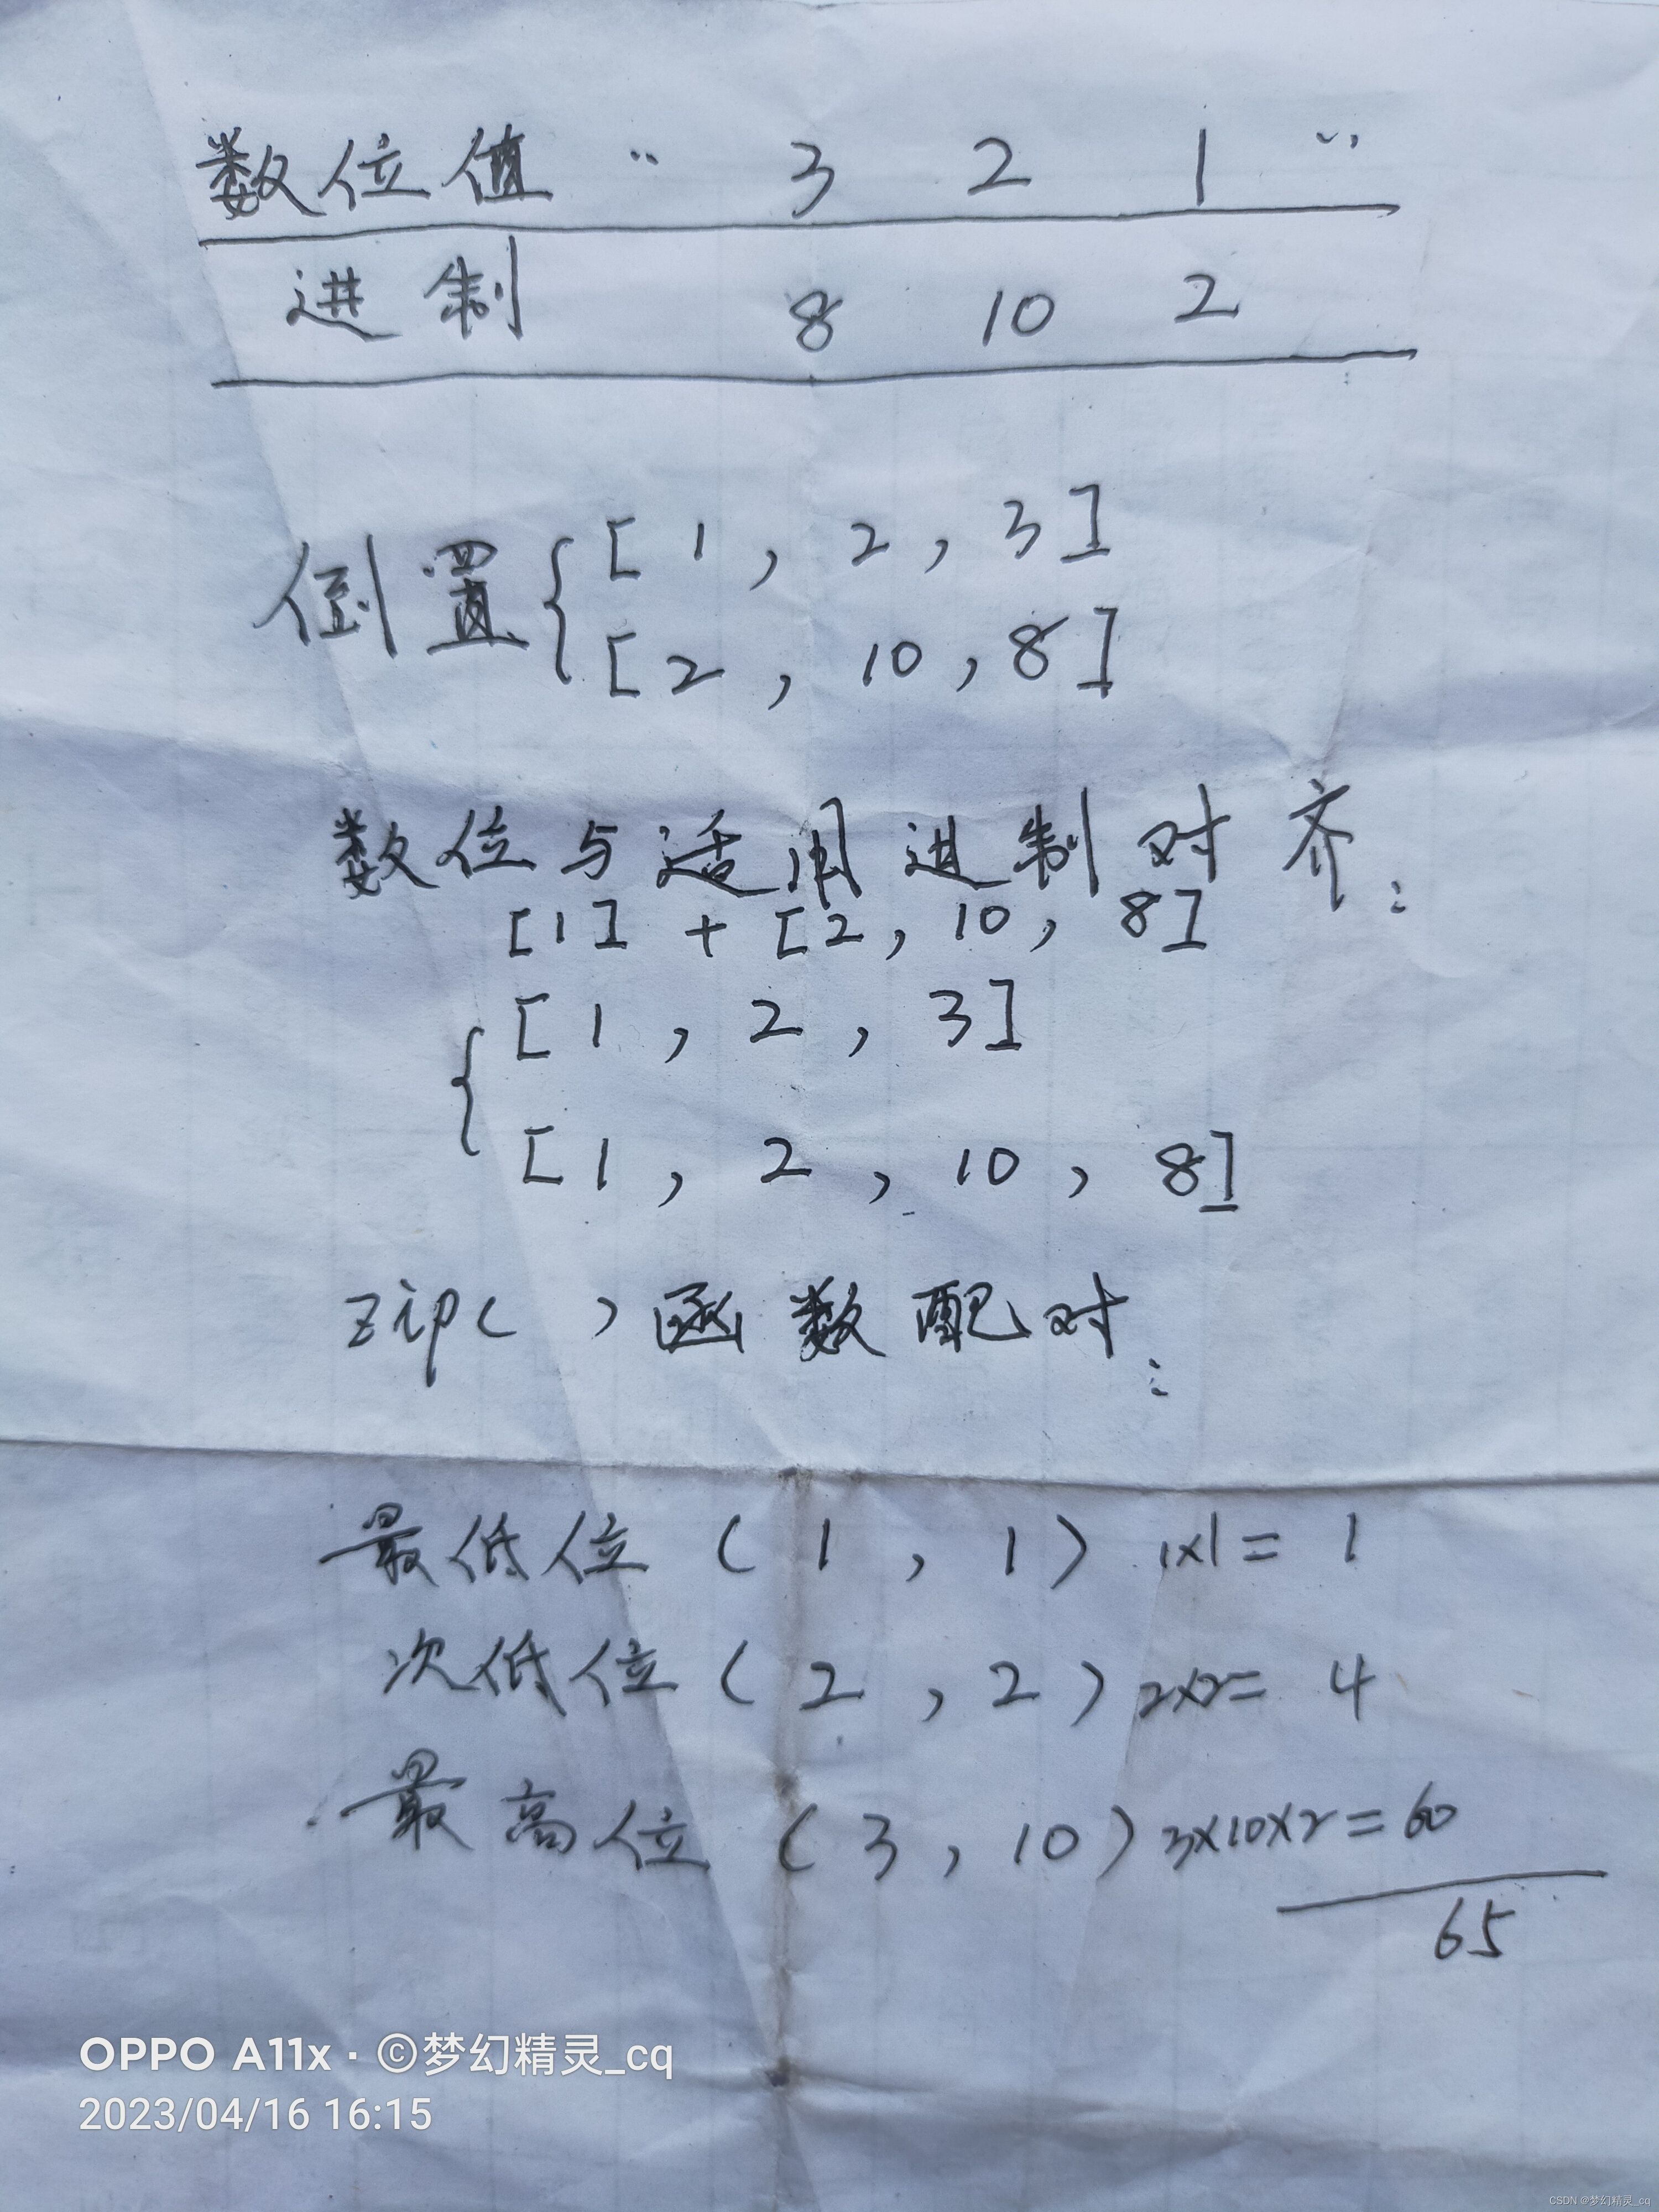 数位值 " 3 2 1 "
进制 8 10 2
倒置 { [ 1 , 2 , 3 ]
[ 2 , 10 , 8 ]
数位与适用进制对齐:
[1] + [2, 10, 8]
{ [ 1 , 2 , 3 ]
[ 1 , 2 , 10 , 8 ]
zip( )函数配对:
最低位 ( 1 , 1 ) 1×1= 1
次低位 ( 2 , 2 ) 2×2= 4
最高位 ( 3 , 10 ) 3×10×2=60
65
OPPO A11x · ©梦幻精灵_cq
2023/04/16 16:15
CSDN @梦幻精灵_cq